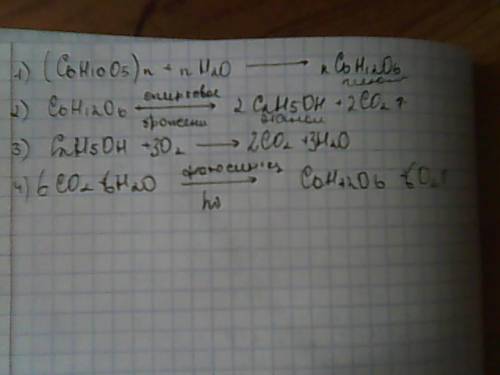 1) (C6H10O5)n + nH2O ⟶ nC6H12O6
глюкоза
2) C6H12O6 спиртовое брожение ⟷ 2C2H5OH + 2CO2↑
этанол
3) C2H5OH + 3O2 ⟶ 2CO2 + 3H2O
4) 6CO2 + 6H2O фотосинтез hν ⟶ C6H12O6 + 6O2↑